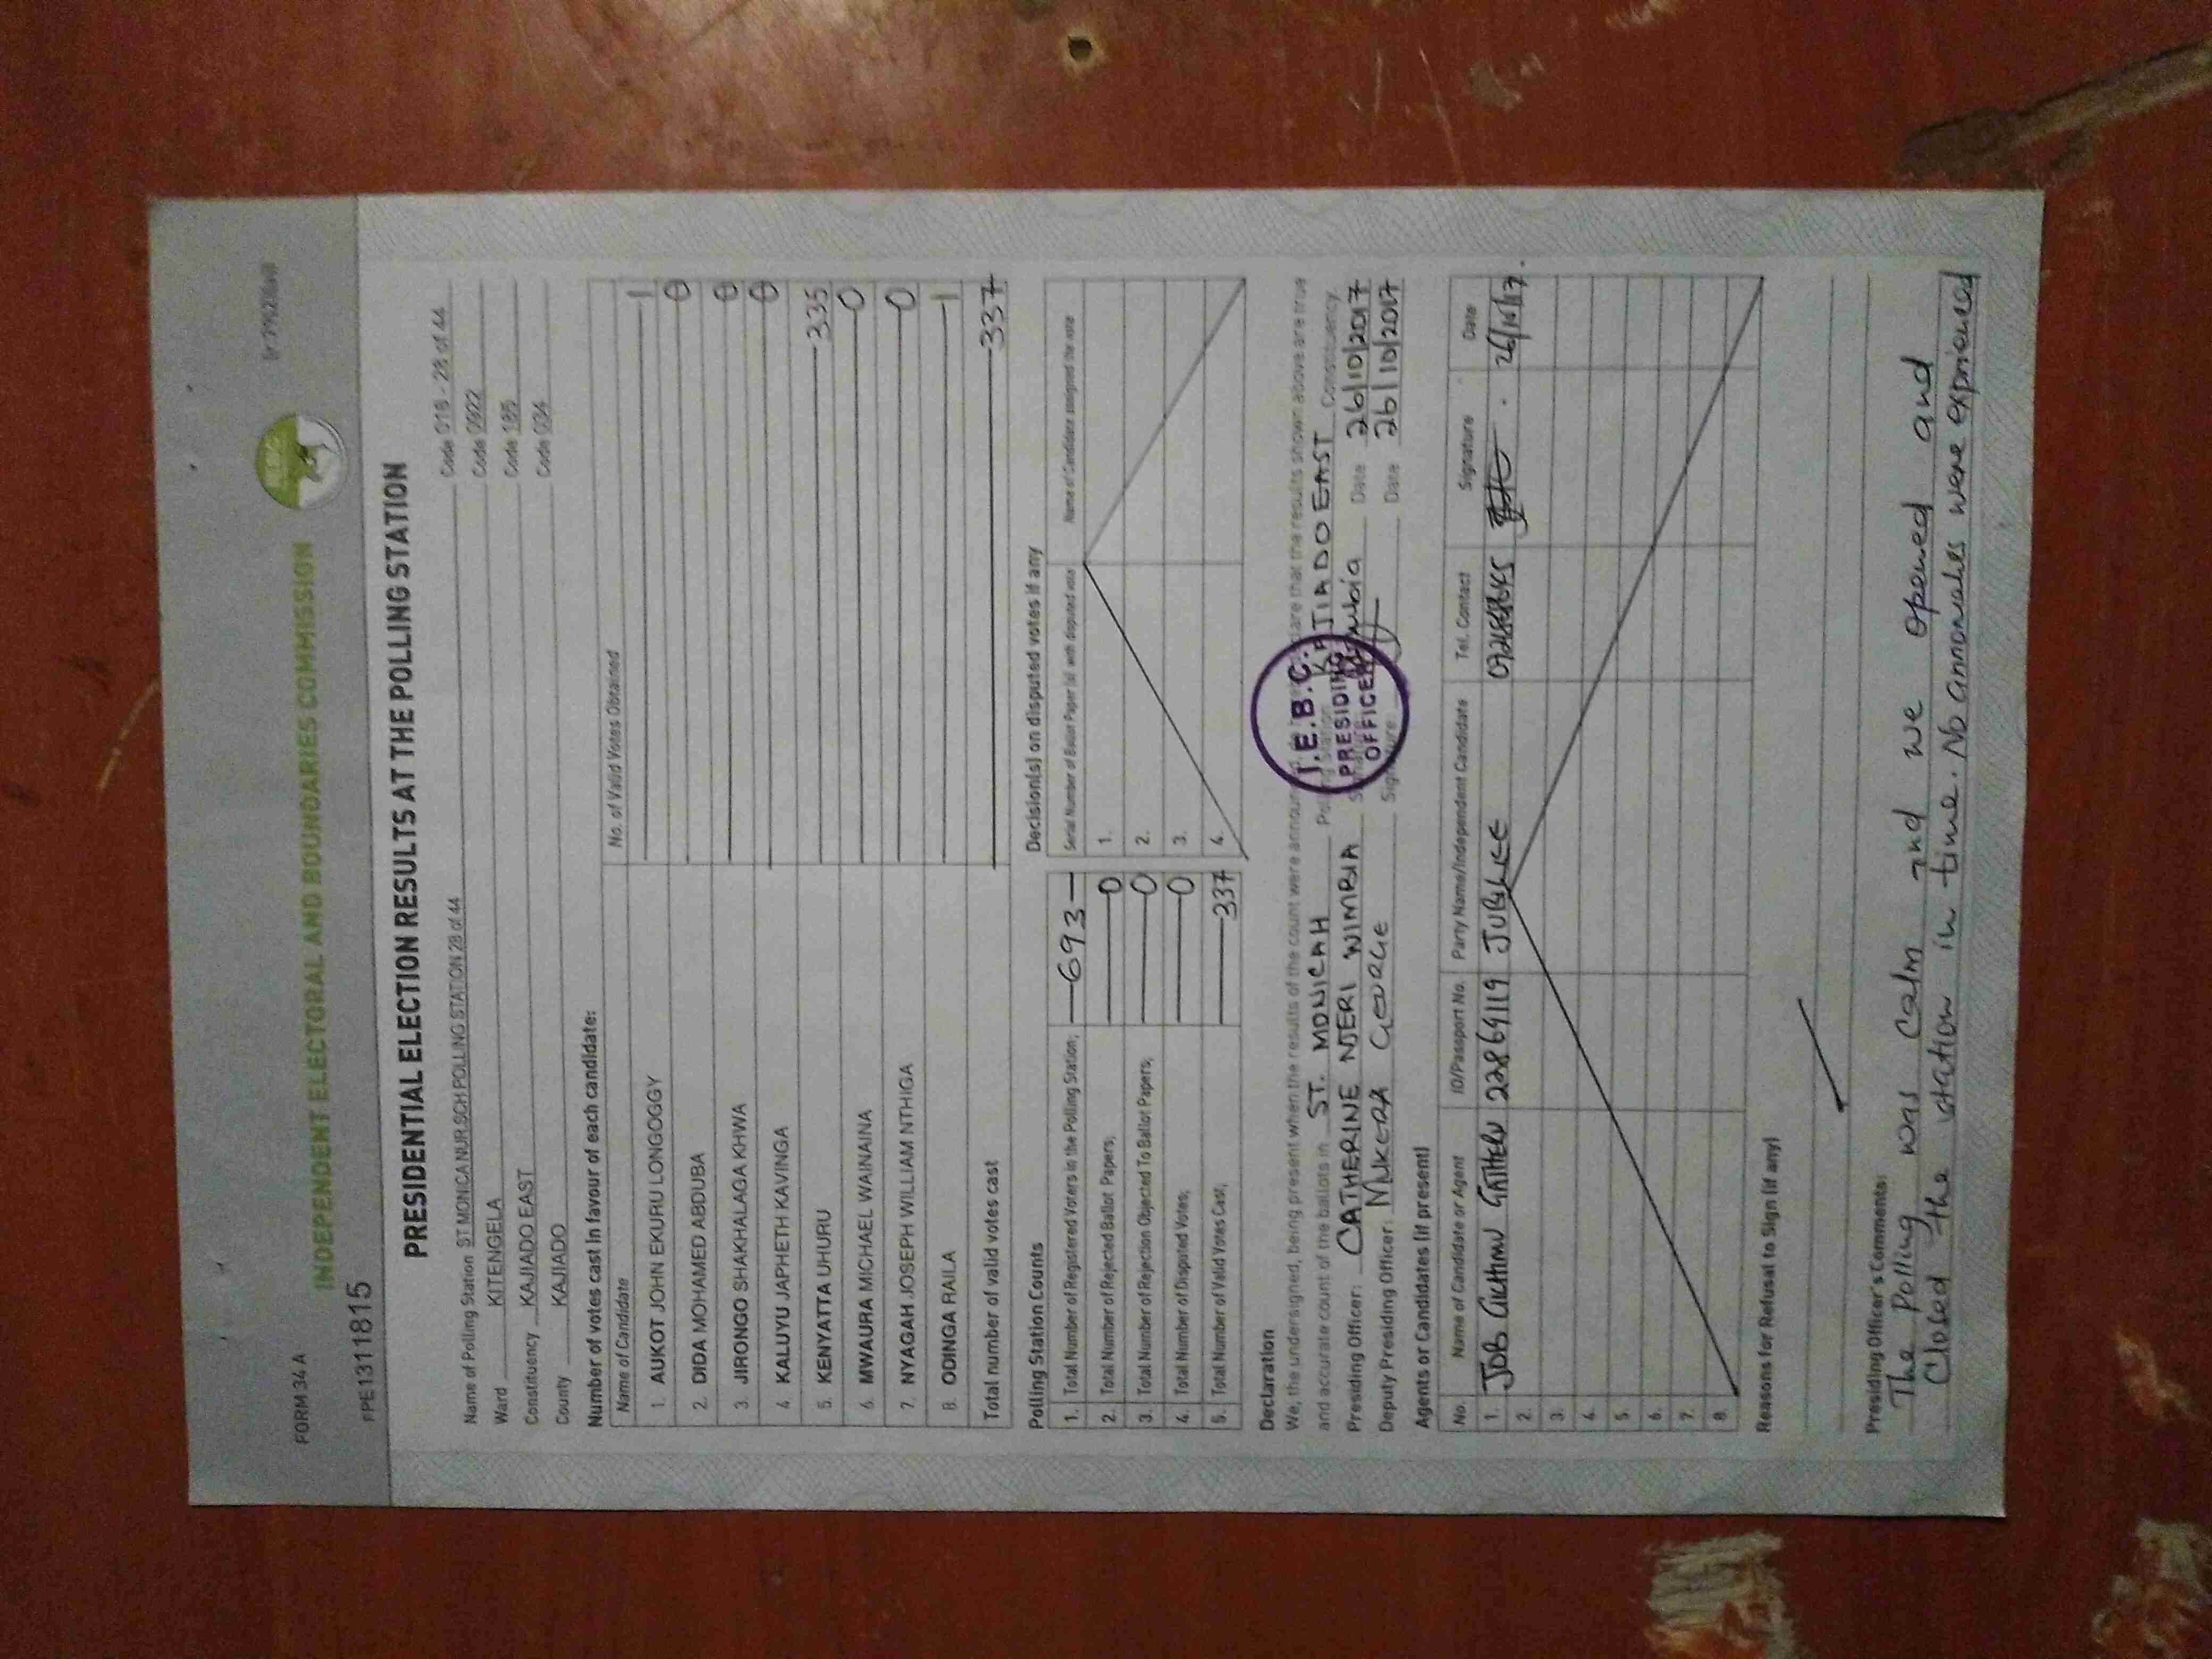 FORM 34 A
INDEPENDENT ELECTORAL AND BOUNDARIES COMMISSION
FPE1311815
PRESIDENTIAL ELECTION RESULTS AT THE POLLING STATION
Name of Polling Station ST MONICA NUR.SCH POLLING STATION 28 of 44 Code 018 - 28 of 44
Ward KITENGELA Code 0922
Constituency KAJIADO EAST Code 185
County KAJIADO Code 034
Number of votes cast in favour of each candidate:
Name of Candidate No. of Valid Votes Obtained
1. AUKOT JOHN EKURU LONGOGGY 1
2. DIDA MOHAMED ABDUBA 0
3. JIRONGO SHAKHALAGA KHWA 0
4. KALUYU JAPHETH KAVINGA 0
5. KENYATTA UHURU 335
6. MWAURA MICHAEL WAINAINA 0
7. NYAGAH JOSEPH WILLIAM NTHIGA 0
8. ODINGA RAILA 1
Total number of valid votes cast 337
Polling Station Counts
1. Total Number of Registered Voters in the Polling Station; 693
2. Total Number of Rejected Ballot Papers; 0
3. Total Number of Rejection Objected To Ballot Papers; 0
4. Total Number of Disputed Votes; 0
5. Total Number of Valid Votes Cast; 337
Decision(s) on disputed votes if any
Serial Number of Ballot Paper (s) with disputed vote Name of Candidate assigned the vote
1.
2.
3.
4.
Declaration
We, the undersigned, being present when the results of the count were announced, do are that the results shown above are true
and accurate count of the ballots in ST. MONICAH Polling Station KAJIADO EAST Constituency.
Presiding Officer: CATHERINE NJERI WIMBIA Date 26/10/2017
Deputy Presiding Officer: MUKERA GEORGE Signature Date 26/10/2017
I.E.B.C.
PRESIDING
OFFICER
Agents or Candidates (if present)
No. Name of Candidate or Agent ID/Passport No. Party Name/Independent Candidate Tel. Contact Signature Date
1. JOB 22869119 JUBILEE 26/10/17.
2.
3.
4.
5.
6.
7.
8.
Reasons for Refusal to Sign (if any)
Presiding Officer's Comments:
The Polling was calm and we opened and
Closed the station in time. No annomalies were experienced